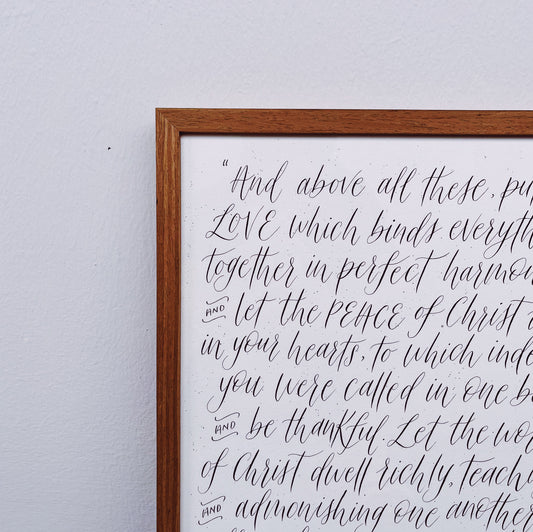 "And above all these, pu
LOVE which binds everyth
together in perfect harmon
AND let the PEACE of Christ
in your hearts, to which inde
you were called in one b
AND be thankful. Let the wor
of Christ dwell richly, teachi
AND admonishing one another